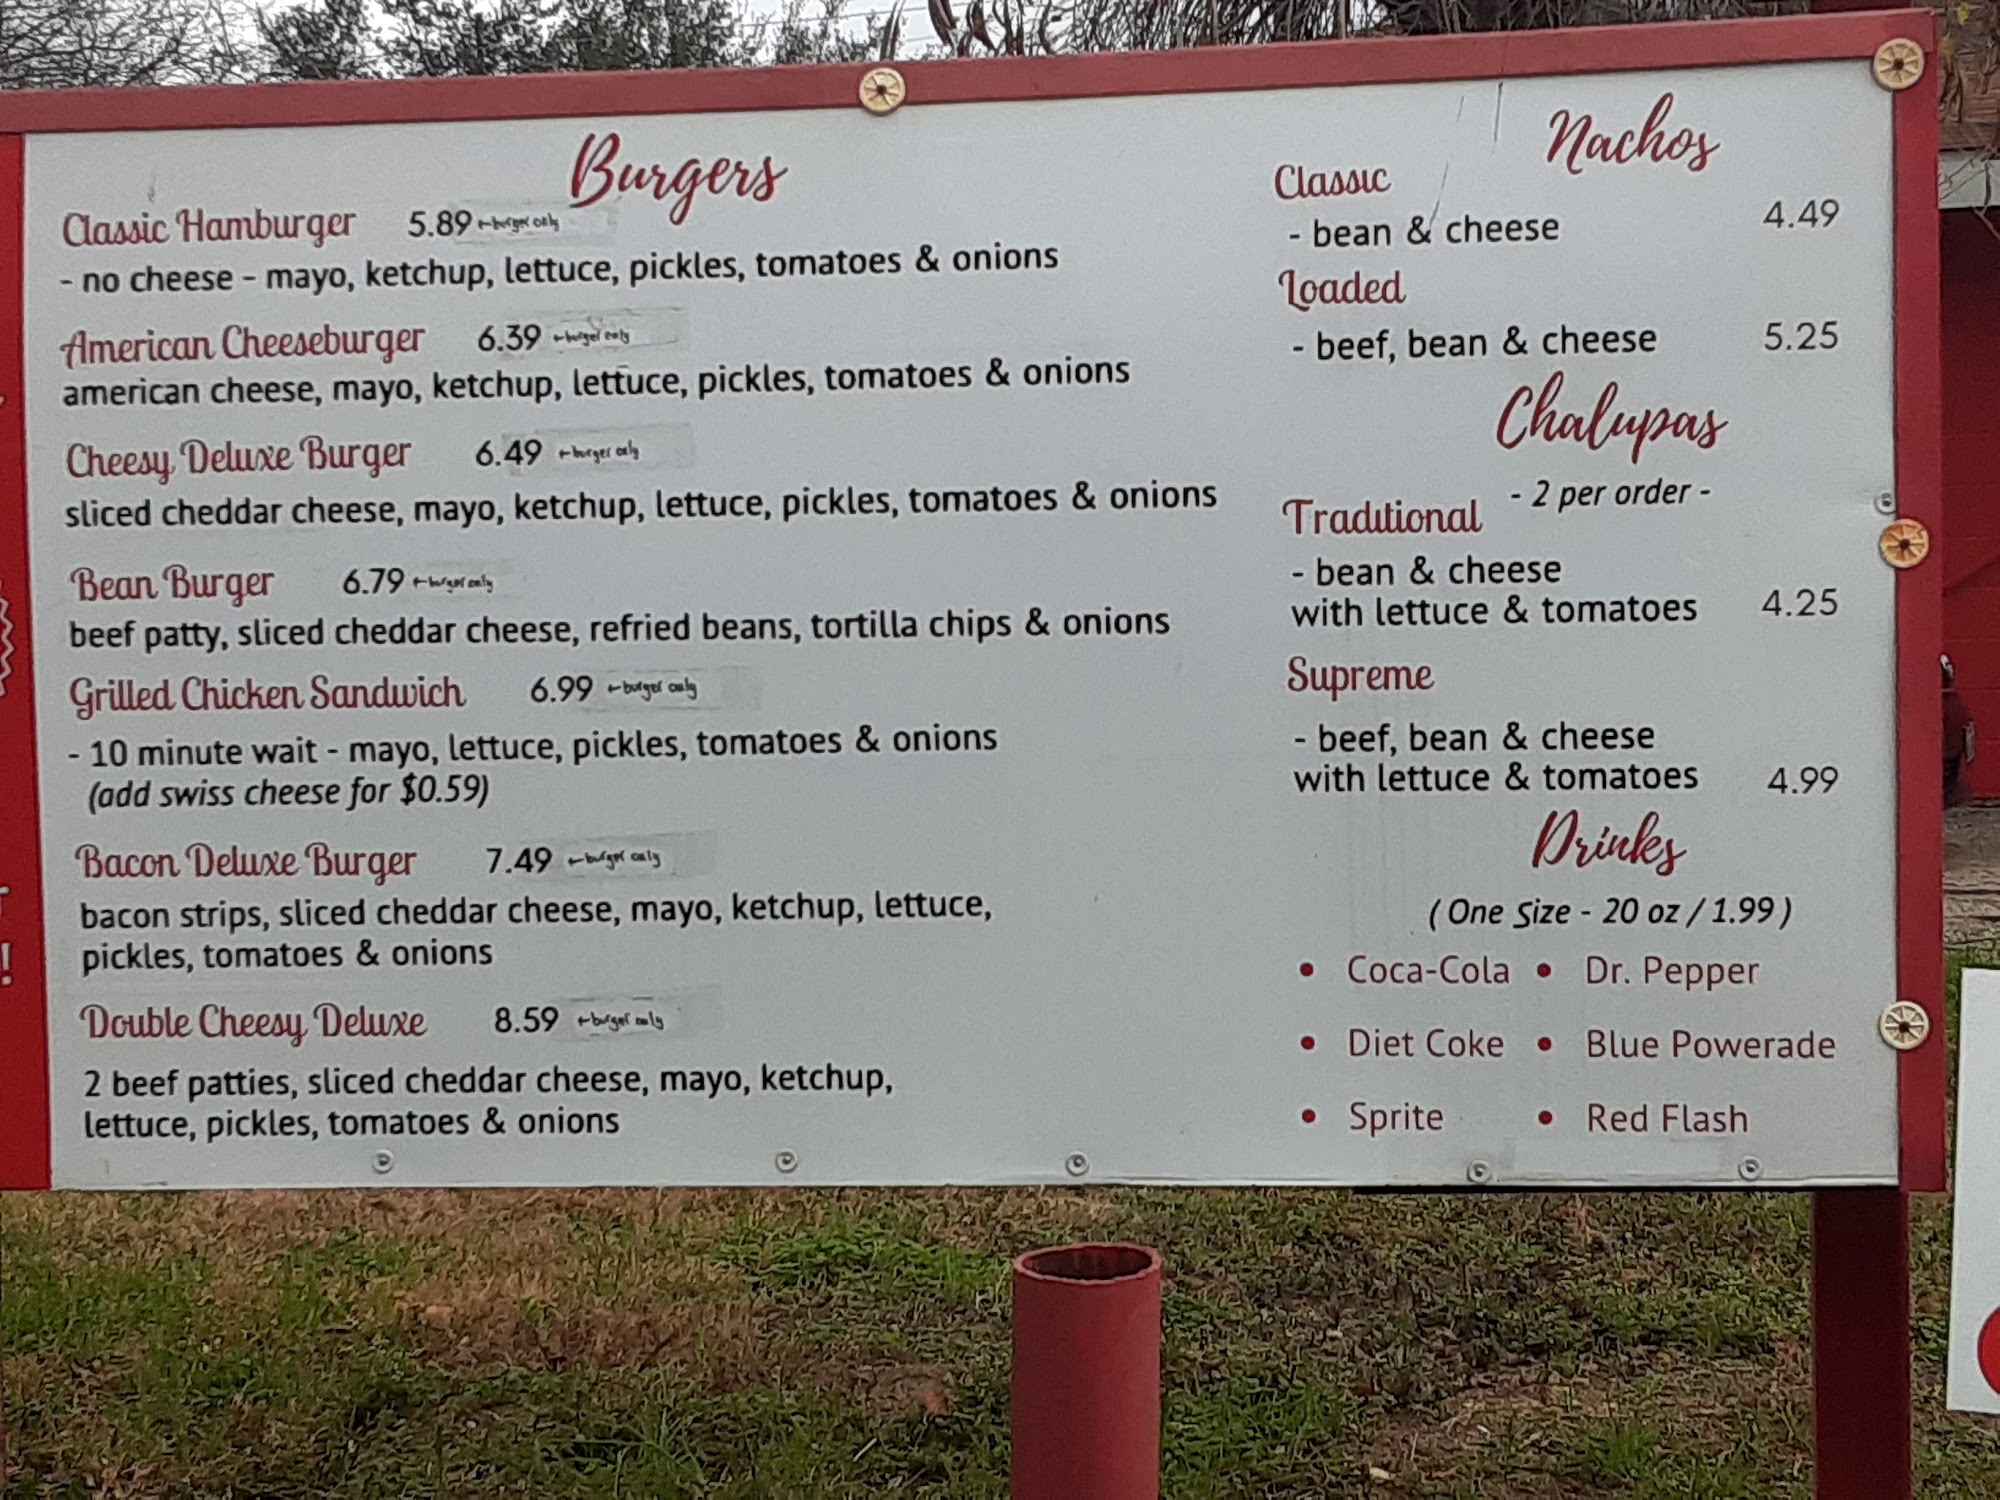 Burgers
Classic Hamburger 5.89 ←burger only
- no cheese - mayo, ketchup, lettuce, pickles, tomatoes & onions
American Cheeseburger 6.39 ←burger only
american cheese, mayo, ketchup, lettuce, pickles, tomatoes & onions
Cheesy Deluxe Burger 6.49 ←burger only
sliced cheddar cheese, mayo, ketchup, lettuce, pickles, tomatoes & onions
Bean Burger 6.79 ←burger only
beef patty, sliced cheddar cheese, refried beans, tortilla chips & onions
Grilled Chicken Sandwich 6.99 ←burger only
- 10 minute wait - mayo, lettuce, pickles, tomatoes & onions
(add swiss cheese for $0.59)
Bacon Deluxe Burger 7.49 ←burger only
bacon strips, sliced cheddar cheese, mayo, ketchup, lettuce,
pickles, tomatoes & onions
Double Cheesy Deluxe 8.59 ←burger only
2 beef patties, sliced cheddar cheese, mayo, ketchup,
lettuce, pickles, tomatoes & onions
Nachos
Classic
- bean & cheese 4.49
Loaded
- beef, bean & cheese 5.25
Chalupas
- 2 per order -
Traditional
- bean & cheese
with lettuce & tomatoes 4.25
Supreme
- beef, bean & cheese
with lettuce & tomatoes 4.99
Drinks
(One Size - 20 oz / 1.99)
• Coca-Cola • Dr. Pepper
• Diet Coke • Blue Powerade
• Sprite • Red Flash